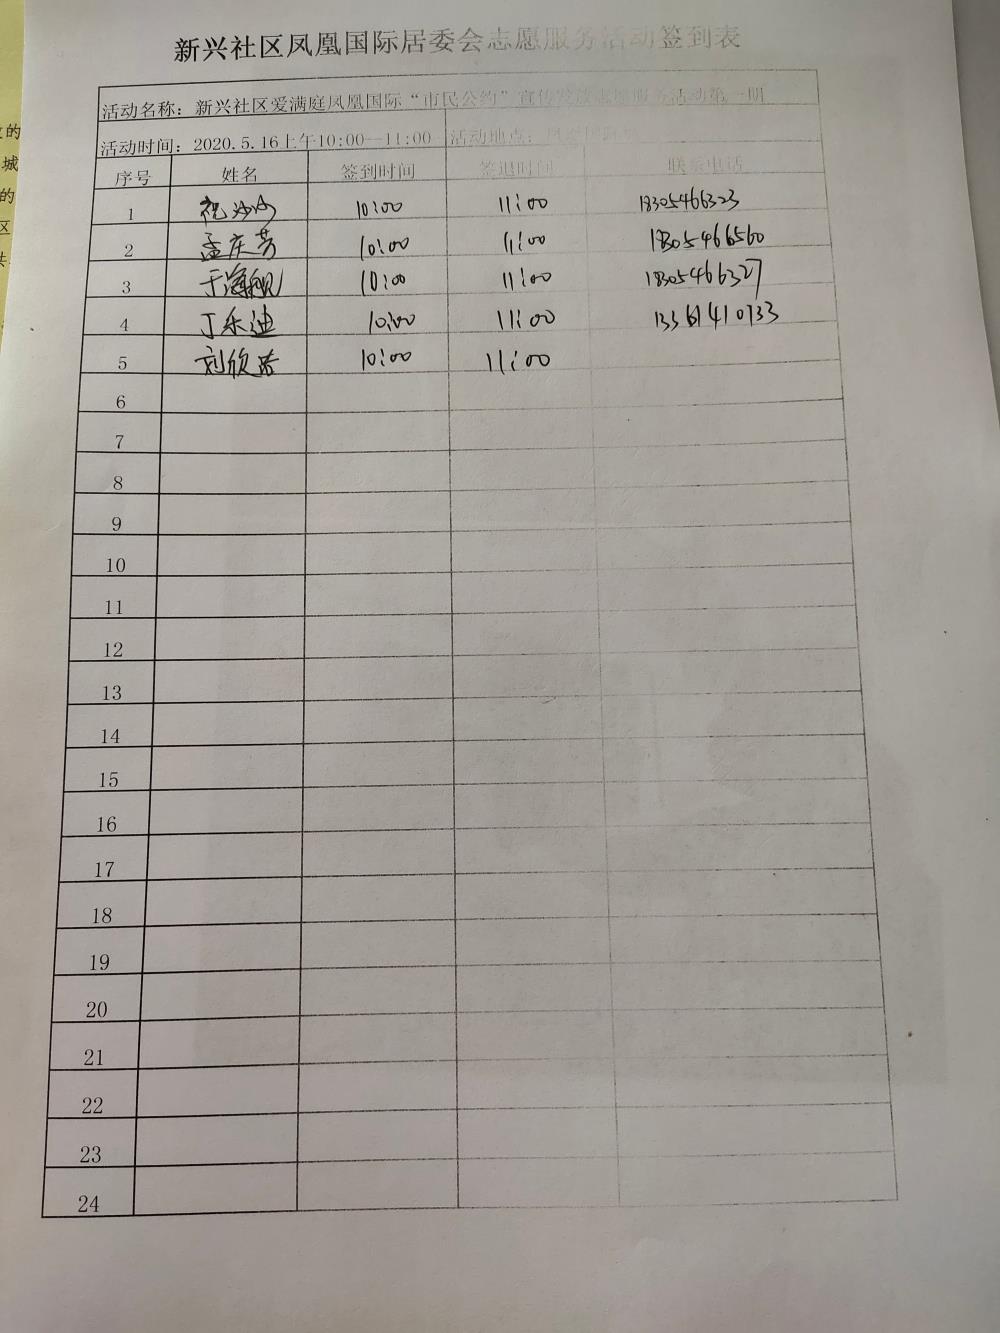 新兴社区凤凰国际居委会志愿服务活动签到表
活动名称：新兴社区爱满庭凤凰国际“市民公约”宣传发放志愿服务活动第一期
活动时间：2020.5.16上午10:00—11:00 活动地点：凤凰国际
序号 姓名 签到时间 签退时间 联系电话
1 祝沙沙 10:00 11:00 18305466323
2 孟庆芳 10:00 11:00 18305466560
3 于海舰 10:00 11:00 18305466327
4 丁乐迪 10:00 11:00 13361410733
5 刘欣 10:00 11:00
6
7
8
9
10
11
12
13
14
15
16
17
18
19
20
21
22
23
24
的
城
的
区